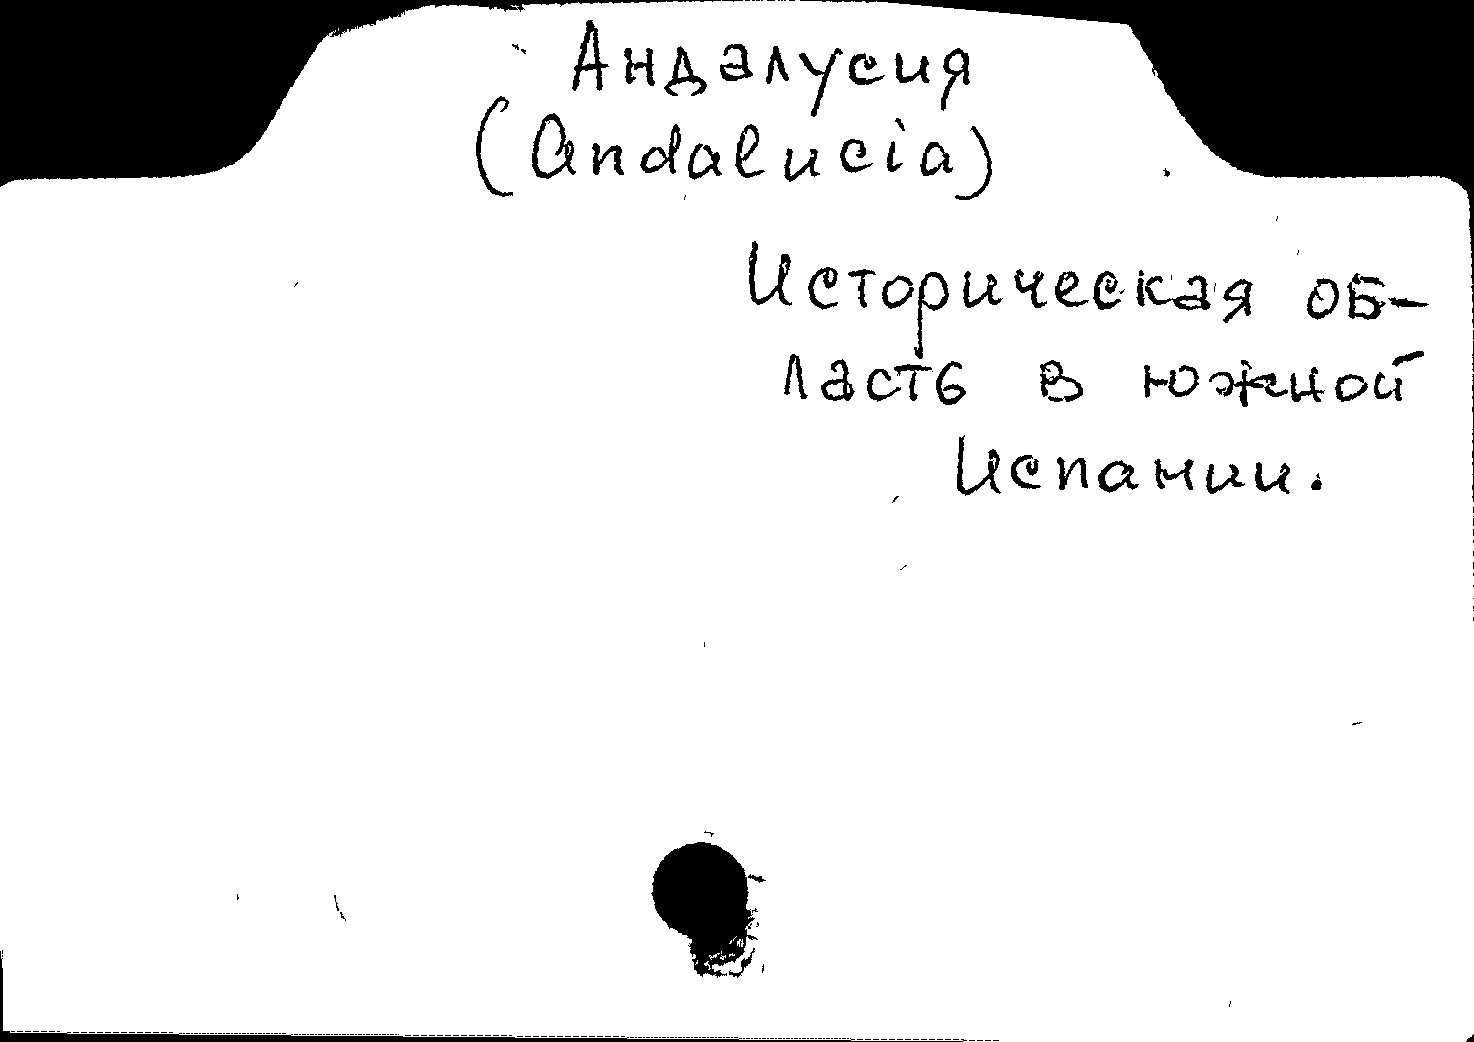 Андалусия
(Andalucia)
Историческая об-
ласть в южной
Испании.